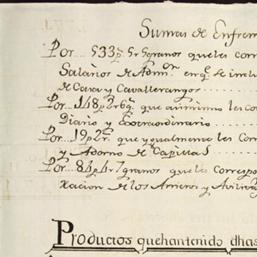 Sumas de Enfrem
Por 533p 5r 5granos que les corre
Salarios de Admon en q.e se inclu
de Casa y Cavallerangos
Por 148p 2r 6g que assimismo les co
Diario y Extraordinario
Por 19p 2r que ygualmente les Corre
y Adorno de Capillas
Por 84p 4r 7granos que les correspo
xacion de los Arrieros y Aviru
Productos que han tenido dhas